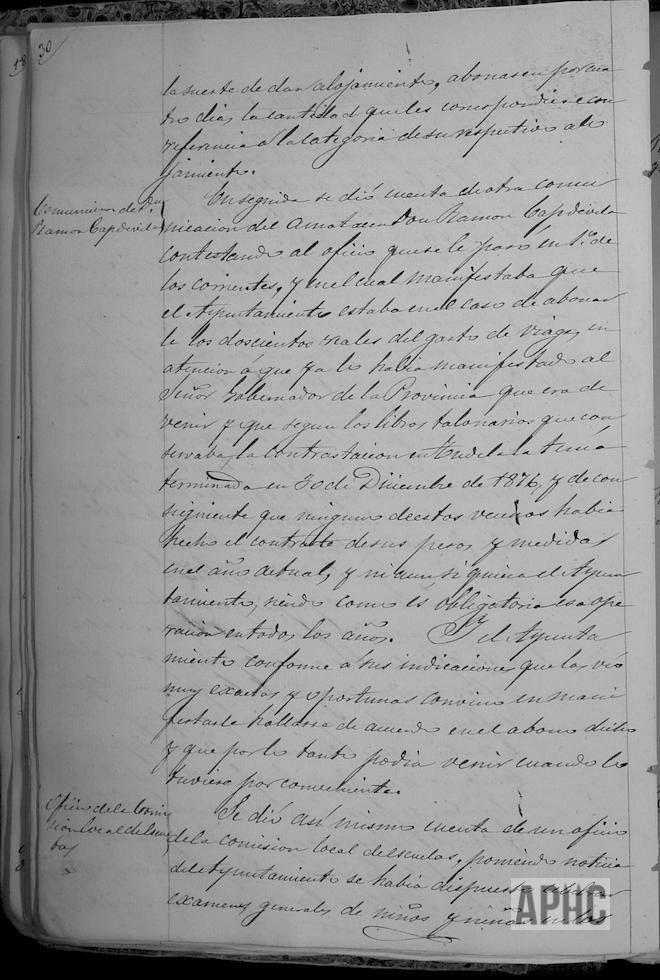 30
la suerte de dar alojamiento, abonasen por cua
tro dias la cantidad que les correspondiese con
referencia á la categoria de su respetivo alo
jamiento.
Comunicacion de Dn.
Ramon Capdevila
En seguida se dió cuenta de otra comu
nicacion del Amotacen Don Ramon Capdevila
contestando al oficio que se le pasó en 1.º de
los corrientes, y en el cual manifestaba que
el Ayuntamiento estaba en el caso de abonar
le los doscientos reales del gasto de viage, en
atencion á que ya lo habia manifestado al
Señor Gobernador de la Provincia que era de
venir y que segun los libros talonarios que con
servaba, la contrastacion en Tudela la tenia
terminada en 30 de Diciembre de 1876, y de con
siguiente que ninguno de estos vecinos habia
hecho el contraste de sus pesos y medidas
en el año actual, y ni aun siquiera el Ayun
tamiento, siendo como es obligatoria esa ope
racion en todos los años. Y el Ayunta
miento conforme á sus indicaciones que las vió
muy exactas y oportunas convino en mani
festarle hallarse de acuerdo en el abono dicho
y que por lo tanto podia venir cuando lo
tuviese por conveniente.
Oficio de la Comi
sion local de Escue
las
Se dió asi mismo cuenta de un oficio
de la comision local de Escuelas, poniendo noticia
del Ayuntamiento se habia dispuesto celebrar
examenes generales de niños y niñas en los
APHC